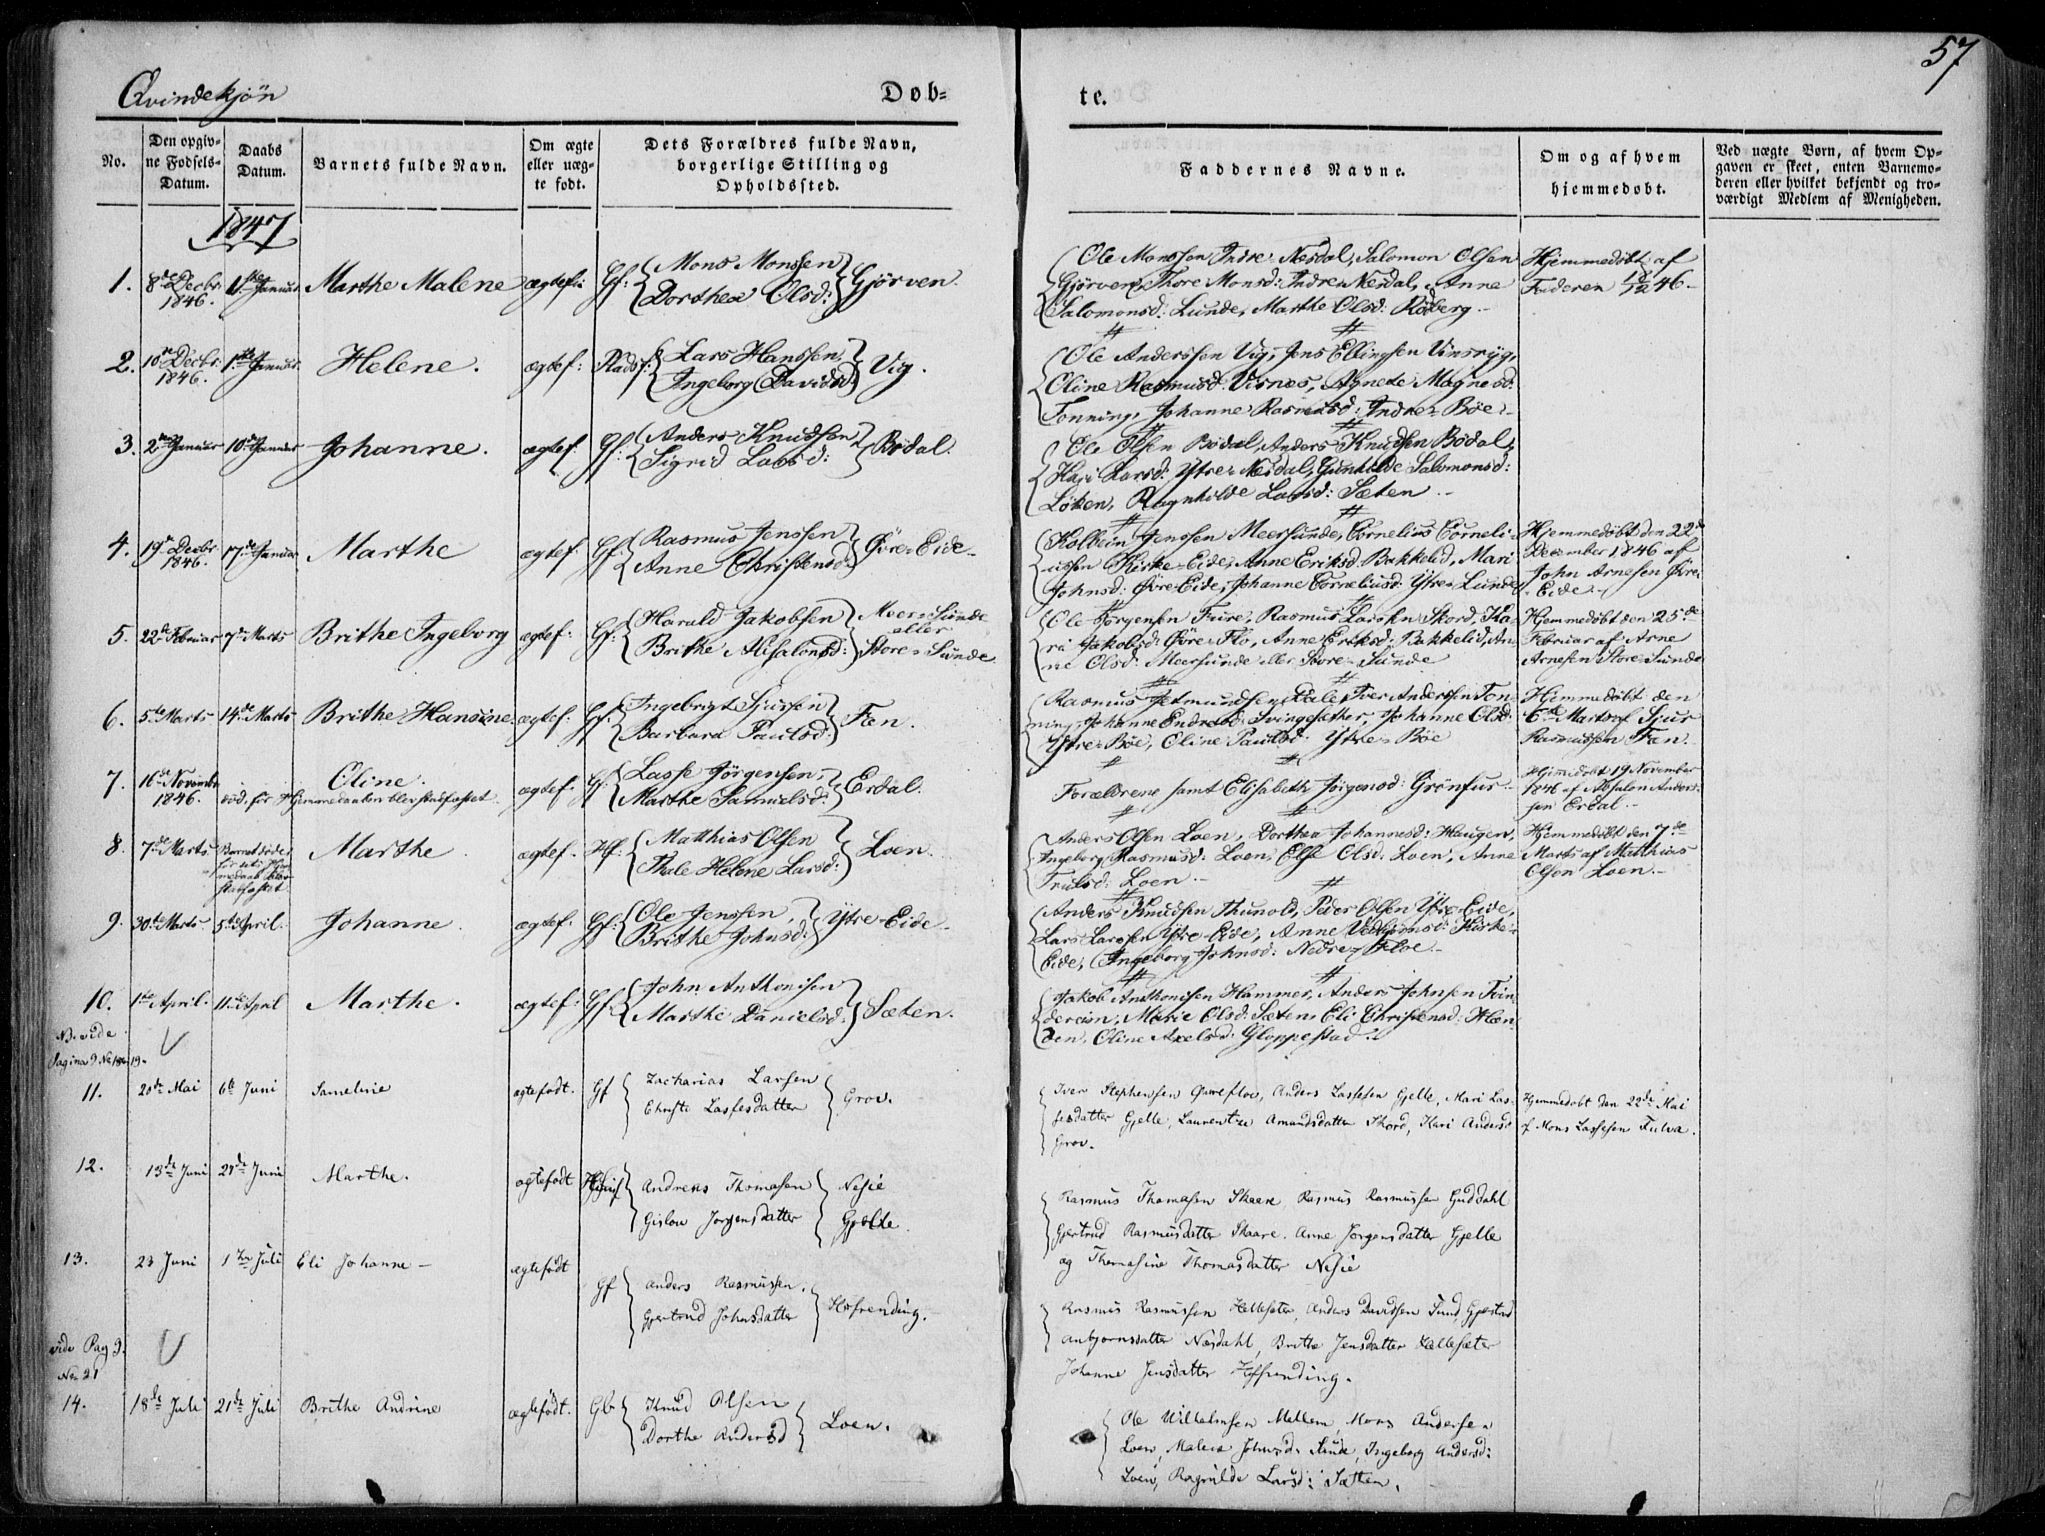 57
Qvindekjön
Døb-
te.
No.
Den opgiv-
ne Fødsels-
Datum.
Daabs
Datum.
Barnets fulde Navn.
Om ægte
eller uæg-
te født.
Dets Forældres fulde Navn,
borgerlige Stilling og
Opholdssted.
Faddernes Navne.
Om og af hvem
hjemmedøbt.
Ved uægte Børn, af hvem Op-
gaven er skeet, enten Barnemo-
deren eller hvilket bekjendt og tro-
værdigt Medlem af Menigheden.
1847
1. 8de Decbr 1846. 1ste Januar Marthe Malene ægtef: Gf: Mons Monsen Dorthea Olsd: Gjörven.
Ole Monssen Indre Nesdal, Salomon Olsen
Gjörven, Thore Monsd: Indre Nesdal, Anne
Salomonsd: Lunde, Marthe Olsd: Röberg.
Hjemmedöbt af
Faderen 18/12 46.
2. 10de Decbr 1846. 1ste Januar Helene. ægtef: Pladsf: Lars Hanssen Ingeborg Davidsd: Vig.
Ole Anderssen Vig, Jens Ellingsen Vinsryg,
Oline Rasmusd: Visnes, Agnete Magnesd:
Tonning, Johanne Rasmusd: Indre-Böe.
3. 2den Januar 10de Januar Johanne. ægtef: Gf: Anders Knudsen Sigrid Larsd: Bödal.
Ole Olsen Bödal, Anders Knudsen Bödal,
Kari Larsd: Ytre-Nesdal, Gunhilde Salomonsd:
Löken, Ragnhilde Larsd: Sæten.
4. 19de Decbr 1846. 17de Januar Marthe ægtef: Gf: Rasmus Jenssen Anne Christensd: Övre-Eide
Kolbein Jenssen Meersunde, Cornelius Corneli-
ussen Kirke-Eide, Anne Eriksd: Bakkelid, Mari
Johnsd: Övre-Eide, Johanne Corneliusd: Ytre-Lunde
Hjemmedöbt den 22de
December 1846 af
John Arnesen Övre-
Eide.
5. 22de Februar 7de Marts Brithe Ingeborg ægtef: Gf: Harald Jakobsen Brithe Absalonsd: Meer-Sunde eller Store-Sunde
Ole Jörgensen Fure, Rasmus Larssen Skord, Ka-
ri Jakobsd: Övre-Flo, Anne Eriksd: Bakkelid, An-
ne Olsd: Meersunde eller Store-Sunde
Hjemmedöbt den 25de
Februar af Arne
Arnesen Store-Sunde
6. 5te Marts 14de Marts Brithe Hansine ægtef: Gf: Ingebrigt Sjursen Barbara Paulsd: Fæn.
Rasmus Jetmundsen Dale, Iver Anderssen Ton-
ning, Johanne Endresd: Svingesæther, Johanne Olsd:
Ytre-Böe, Oline Paulsd: Ytre-Böe
Hjemmedöbt den
6te Marts af Sjur
Rasmussen Fæn.
7. 16de Novembr 1846. Oline. ægtef: Gf: Lasse Jörgensen, Marthe Samuelsd: Erdal.
död, för Hjemmedaaben blev stadfæstet.
Forældrene samt Elisabeth Jörgensd: Grönfur
Hjemmedöbt 19 November
1846 af Absalon Anders-
sen Erdal.
8. 7de Marts Barnet döde Marthe ægtef. Hf: Matthias Olsen Thale Helene Larsd: Loen.
för sit Hjem-
medaab blev
stadfæstet
Anders Olsen Loen, Dorthea Johannesd: Haugen,
Ingeborg Rasmusd: Loen, Else Olsd: Loen, Anne
Trulsd: Loen.
Hjemmedöbt den 7de
Marts af Matthias
Olsen Loen.
9. 30te Marts 5te April. Johanne. ægtef. Gf: Ole Jenssen, Brithe Johnsd: Ytre-Eide
Anders Knudsen Thunold, Peder Olsen Ytre-Eide,
Lars Larssen Ytre-Eide, Anne Kirke-
Eide, Ingeborg Johnsd: Nedre-Floe.
10. 1ste April. 11te April Marthe. ægtef: Gf: John Anthonisen Marthe Danielsd: Sæten.
Jakob Anthonisen Hammer, Anders Johnsen Tvin-
dereim, Marie Olsd: Sæten, Eli Christensd: Hæn-
den, Oline Axelsd: Gloppestad.
NB. vide
Pagina 9 No 18 & 19.
11. 20de Mai 6te Juni Samuline ægtefødt. Gf Zacharias Larsen Christi Lassesdatter Grov.
Iver Stephensen Øvrefloe, Anders Lassesen Gjelle, Mari Las-
sesdatter Gjelle, Laurentze Amundsdatter Skord, Kari Andersd
Grov.
Hjemmedøbt den 22de Mai
af Mons Lassesen Fulva.
12. 13de Juni 27de Juni Marthe. ægtefødt Andreas Thomasen Gislou Jørgensdatter Nesie Gjelle.
Rasmus Thomasen Skaare, Rasmus Rasmussen Guddahl
Gjertrud Rasmusdatter Skaare, Anne Jørgensdatter Gjelle
og Thomasine Thomasdatter Nesie
13. 23 Juni 1ste Juli Eli Johanne ægtefødt Gf Anders Rasmussen. Gjertrud Johnsdatter Hoffrending.
Rasmus Rasmussen Hellesæter, Anders Davidsen Sund, Gjertrud
Anbjørnsdatter Næsdahl, Brithe Jensdatter Hellesæter
Johanne Jensdatter Hoffrending.
vide Pag 9.
No 21
14. 18de Juli 21de Juli Brithe Andrine ægtefødt. Gb Knud Olsen Dorthe Andersd Loen.
Ole Wilhelmsen Mellem, Mons Andersen
Loen, Malene Johnsd: Sunde, Ingeborg Andersd:
Loen, Ragnilde Larsd: Sætten.